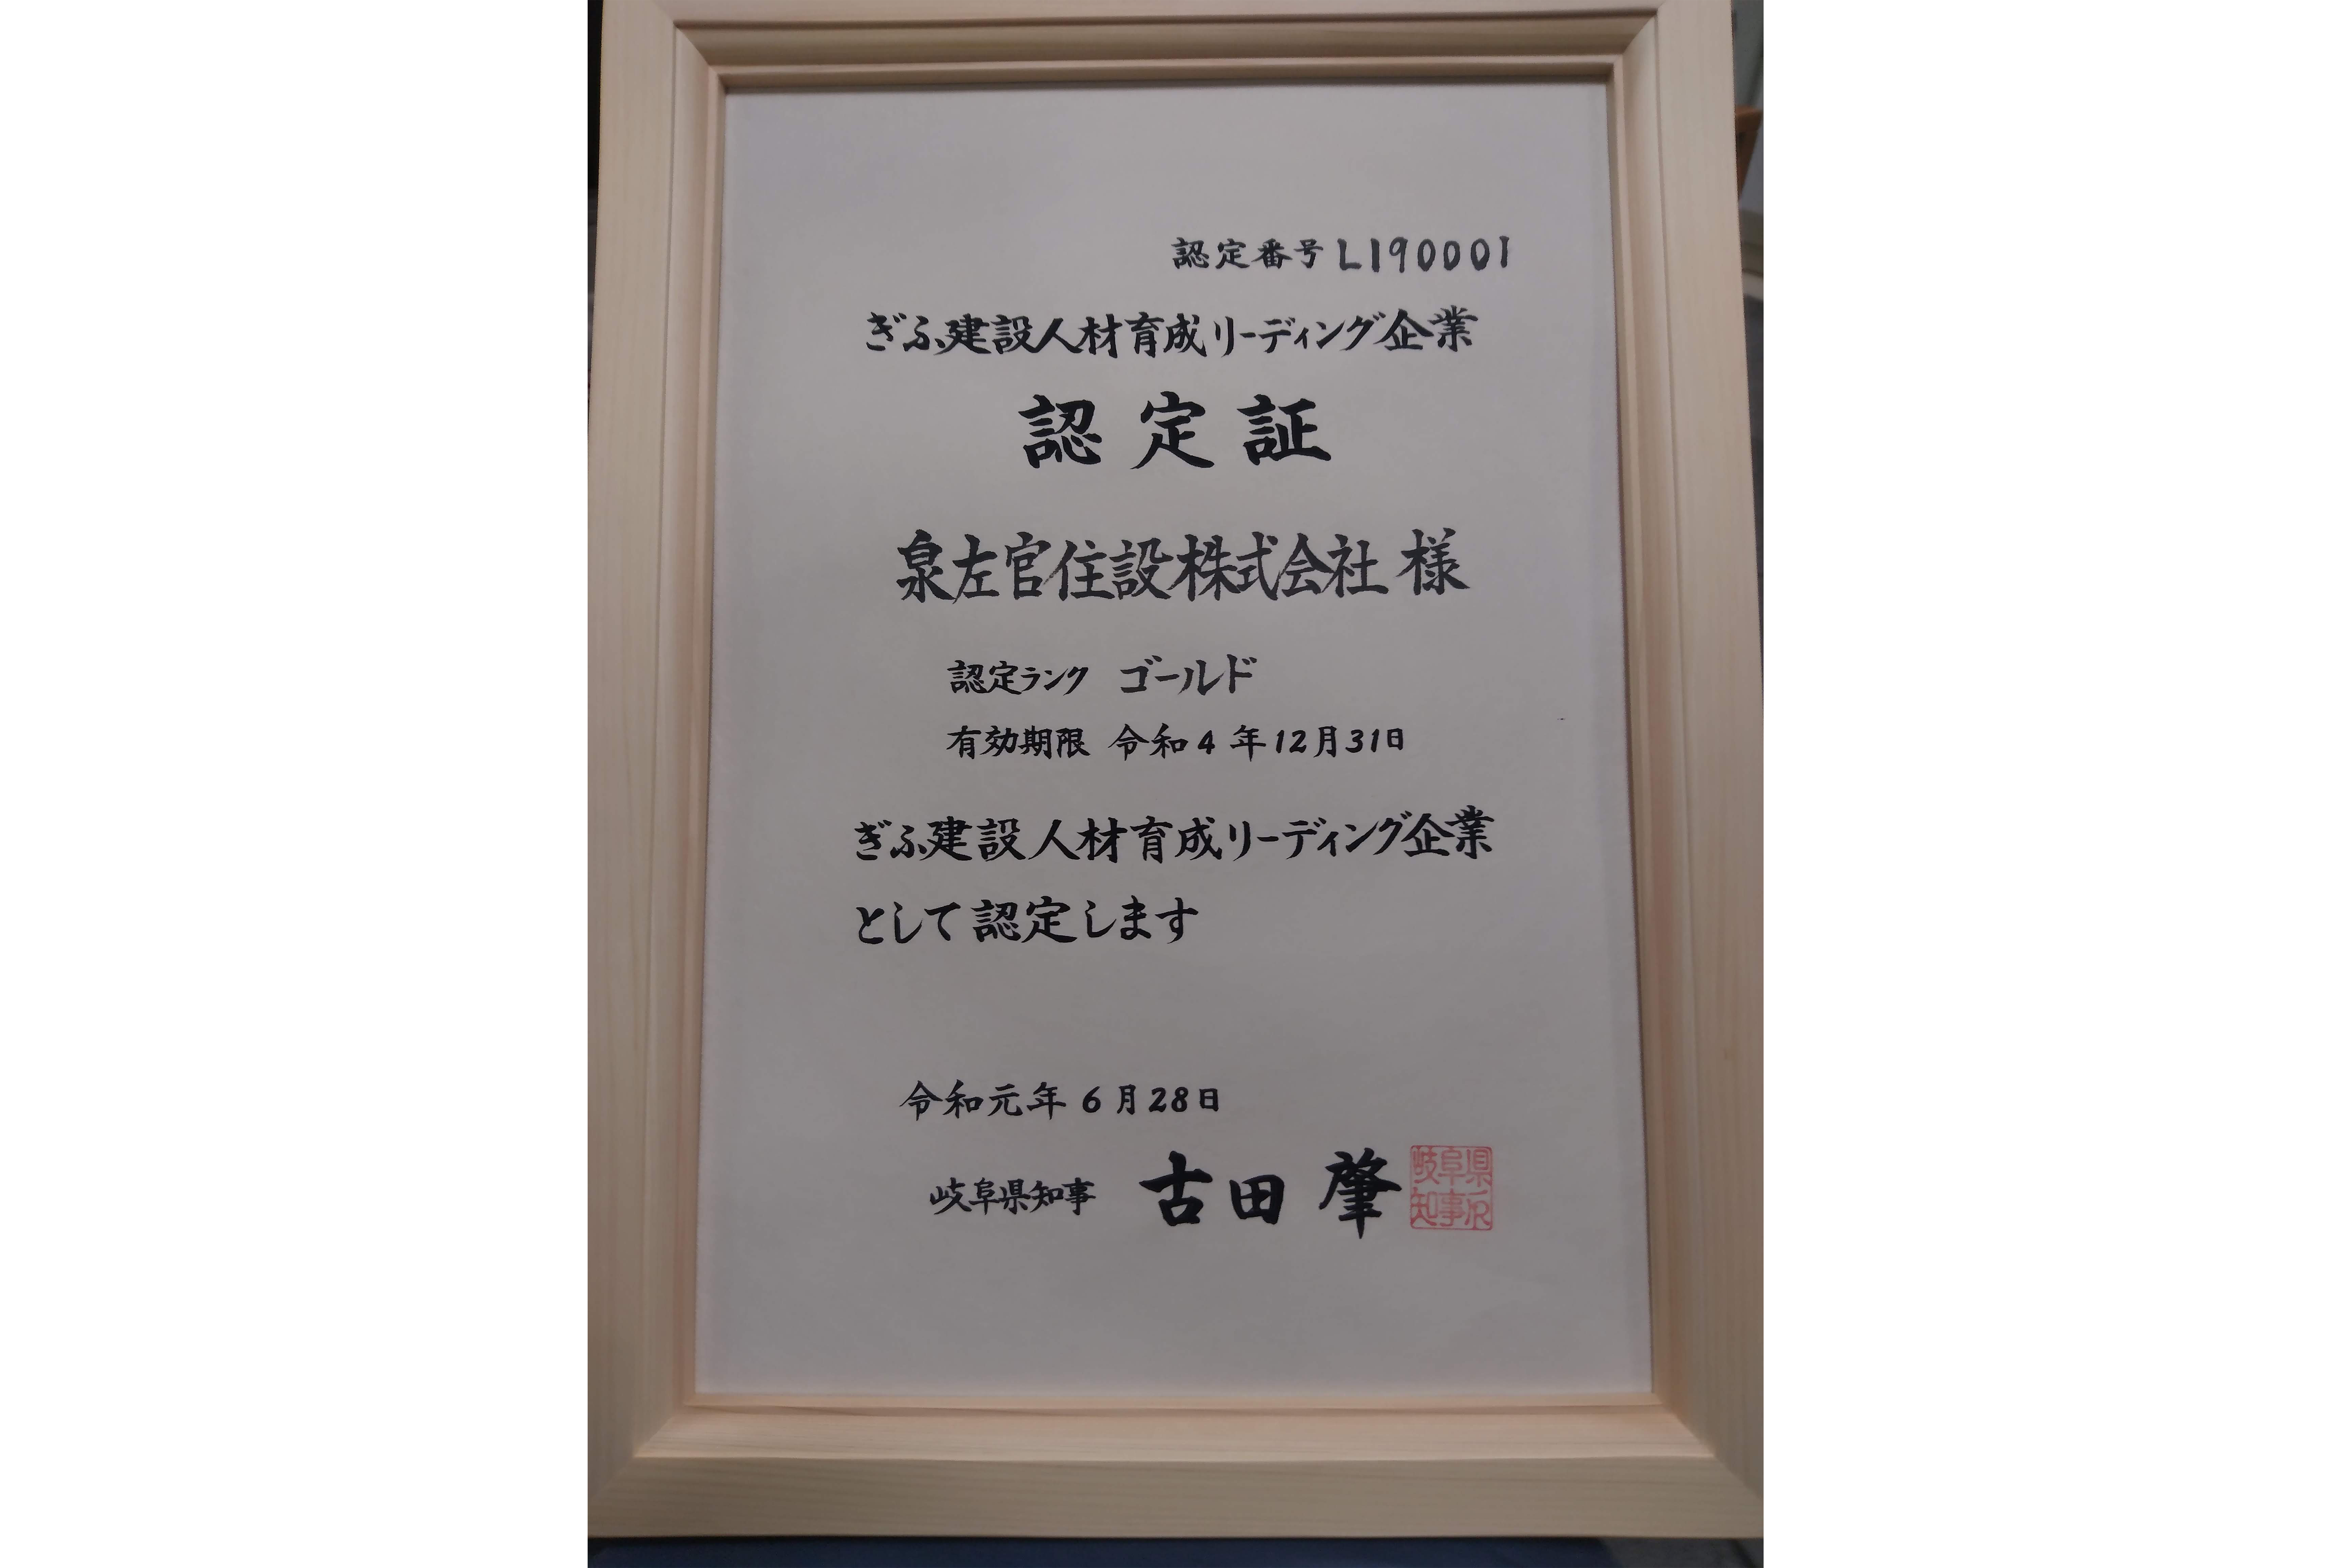 認定番号 L190001
ぎふ建設人材育成リーディング企業
認定証
泉左官住設株式会社 様
認定ランク ゴールド
有効期限 令和4年12月31日
ぎふ建設人材育成リーディング企業
として認定します
令和元年6月28日
岐阜県知事 古田 肇
岐阜県
知事印